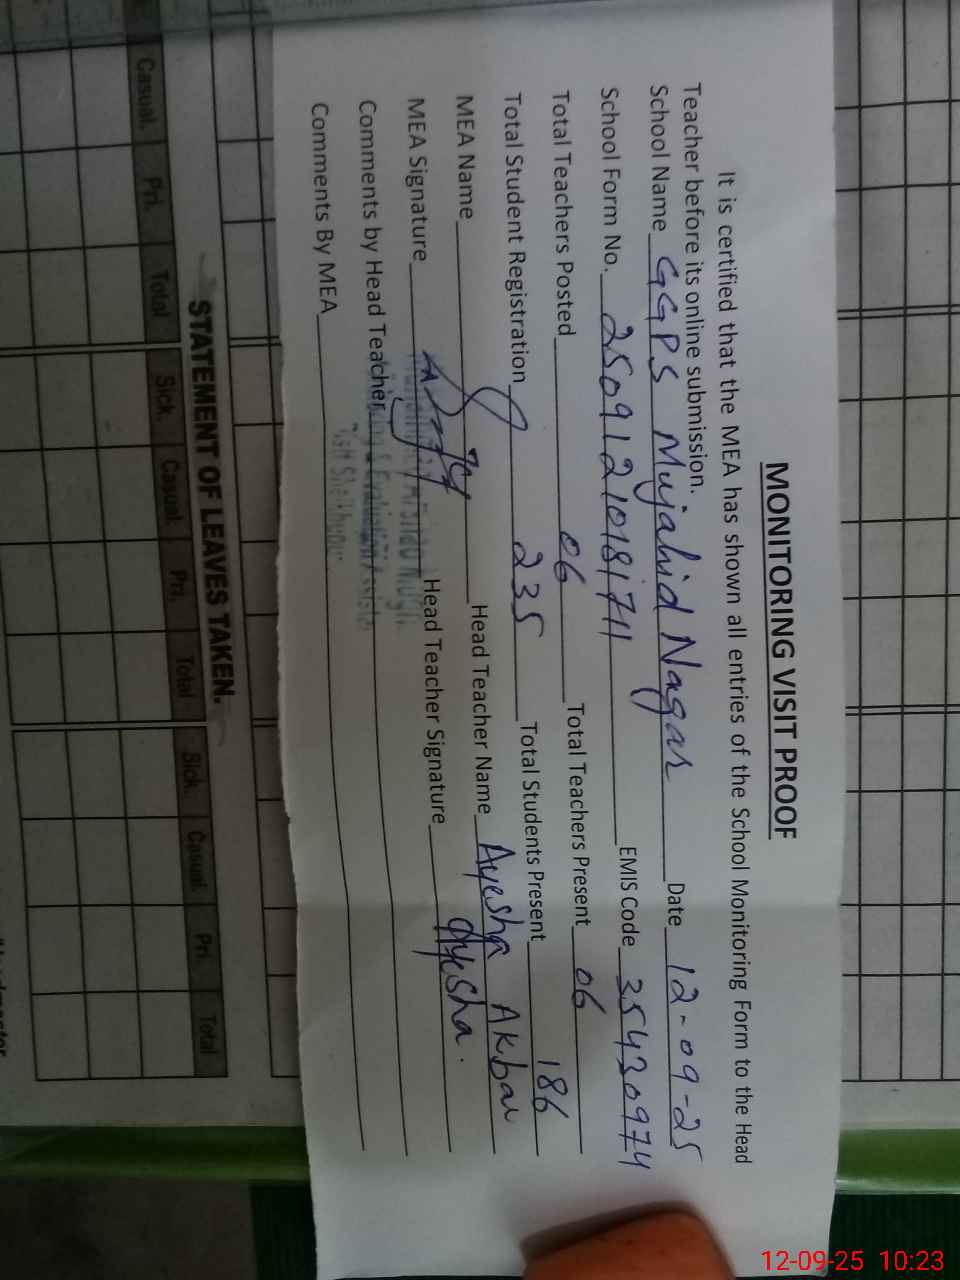 MONITORING VISIT PROOF
It is certified that the MEA has shown all entries of the School Monitoring Form to the Head
Teacher before its online submission.
School Name GGPS Mujahid Nagar Date 12-09-25
School Form No. 25091210181711 EMIS Code 35430974
Total Teachers Posted 06 Total Teachers Present 06
Total Student Registration 235 Total Students Present 186
MEA Name Head Teacher Name Ayesha Akbar
MEA Signature Head Teacher Signature Ayesha.
Comments by Head Teacher
Comments By MEA
STATEMENT OF LEAVES TAKEN.
Casual. Pri. Total Sick. Casual. Pri. Total Sick. Casual. Pri. Total
12-09-25 10:23